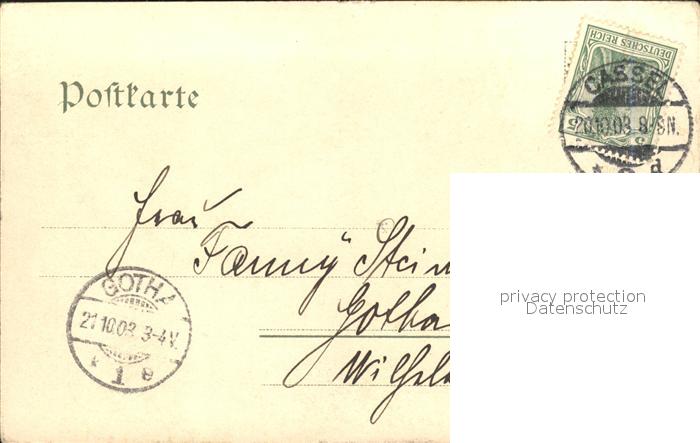 DEUTSCHES REICH
5
Postkarte
CASSEL
20.10.03. 8-9N.
d
Frau
Fanny Stein
Gotha
Wilhel
GOTHA
21.10.03. 3-4V.
* 1 e
privacy protection
Datenschutz